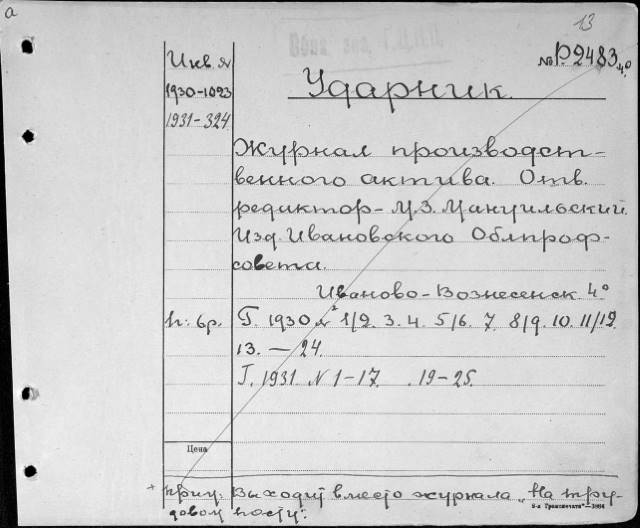 а
13
Инв. №
№ Р.2483 4°
1930-1093
Ударник.
1931-324
Журнал производст-
венного актива. Отв.
редактор - М.З. Мануильский.
Изд. Ивановского Облпроф-
совета.
Иваново-Вознесенск. 4°
п: бр. Г. 1930 № 1/2. 3. 4. 5/6. 7. 8/9. 10. 11/12.
13. — 24.
Г. 1931. N 1-17. . 19-25.
Цена
+ прич: Выходит вместо журнала „На тру-
довом посту".